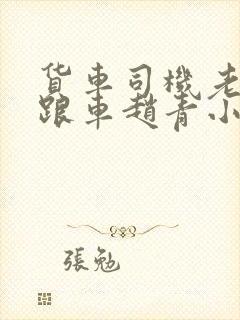 货车司機老
跟車趙青小
張勉